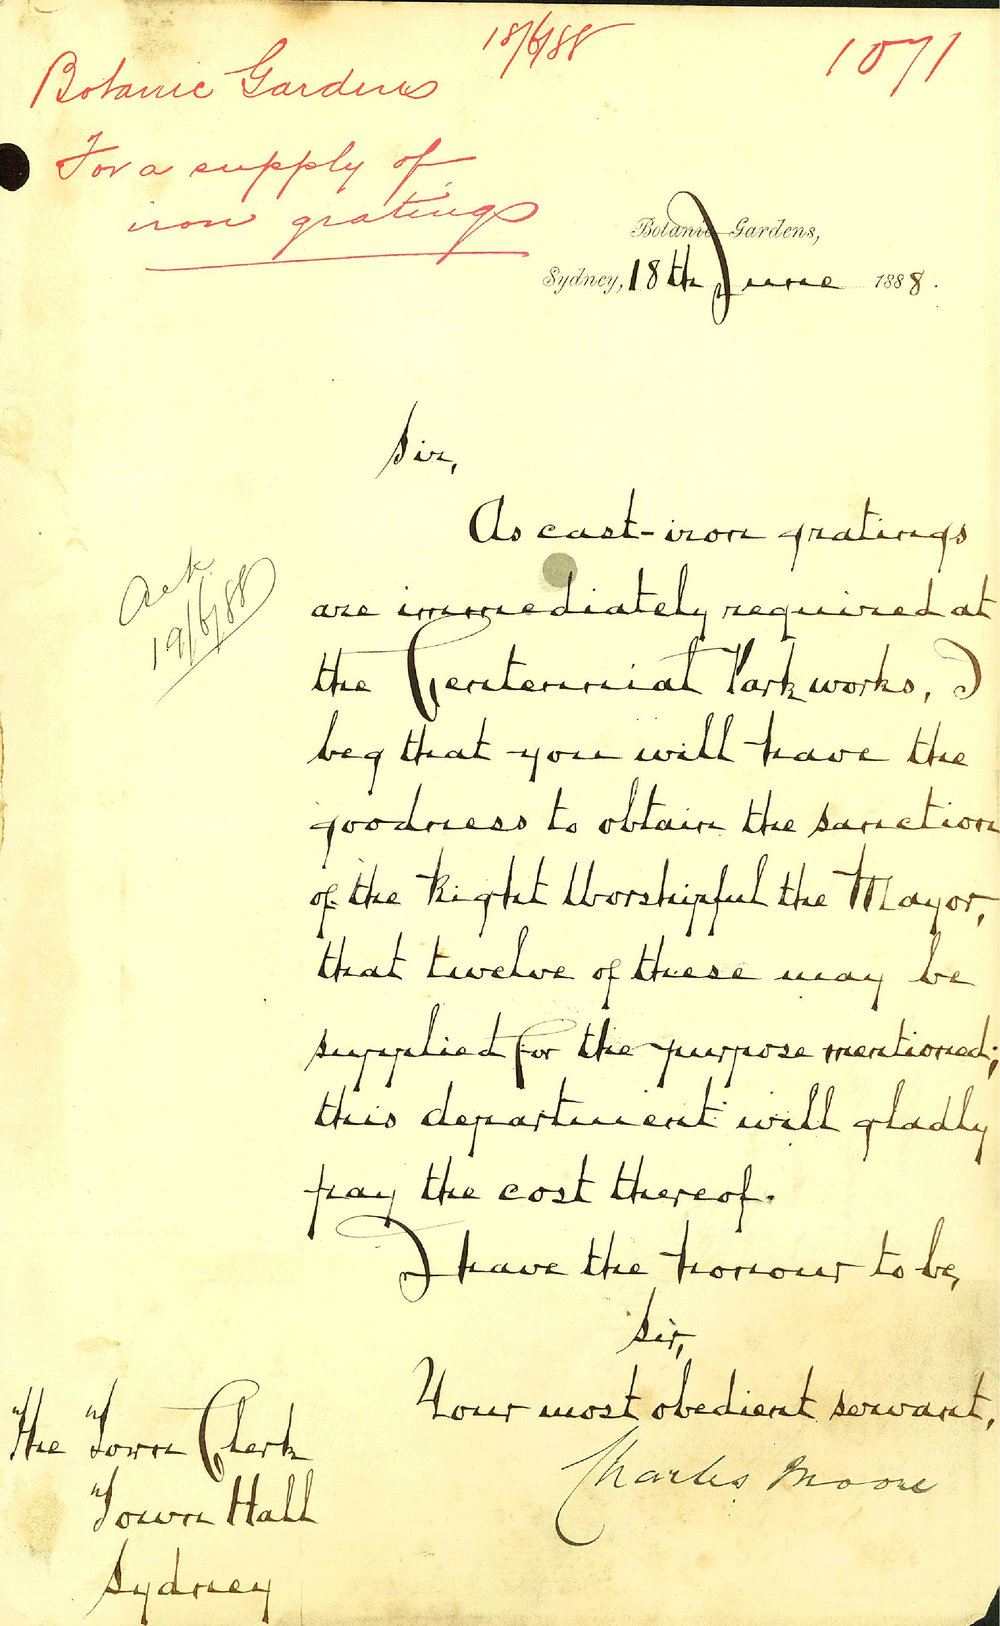 18/6/88
1071
Botanic Gardens
For a supply of
iron gratings
Botanic Gardens,
Sydney, 18th June 1888.
Sir,
As cast-iron gratings
Ack
19/6/88
are immediately required at
the Centennial Park works, I
beg that you will have the
goodness to obtain the sanction
of the Right Worshipful the Mayor,
that twelve of these may be
supplied for the purpose mentioned;
this department will gladly
pay the cost thereof.
I have the honour to be,
Sir,
Your most obedient servant,
Charles Moore
The Town Clerk
Town Hall
Sydney